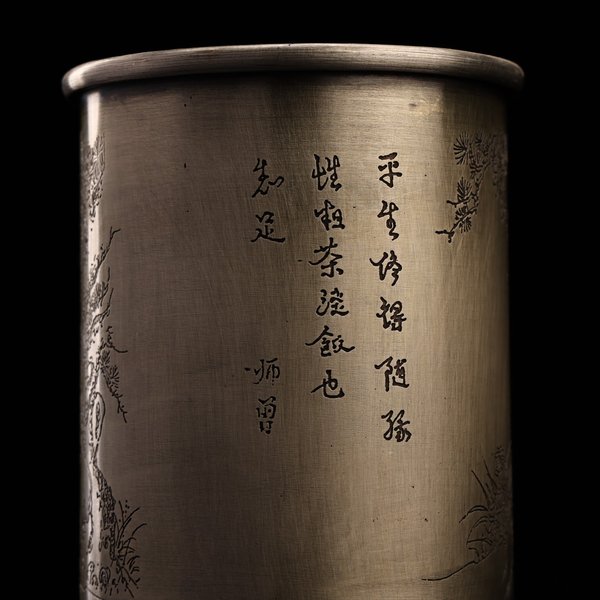 平生修得随缘
性粗茶淡飯也
知足 师曾